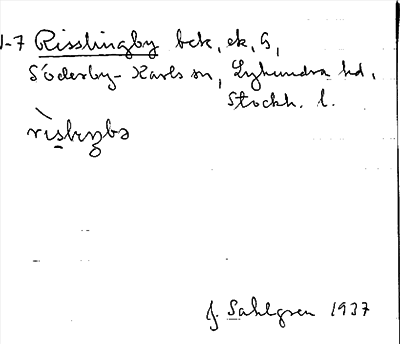 1-7 Risslingby bck, ek, G,
Söderby-Karls sn, Lyhundra hd,
Stockh. l.
J. Sahlgren 1937